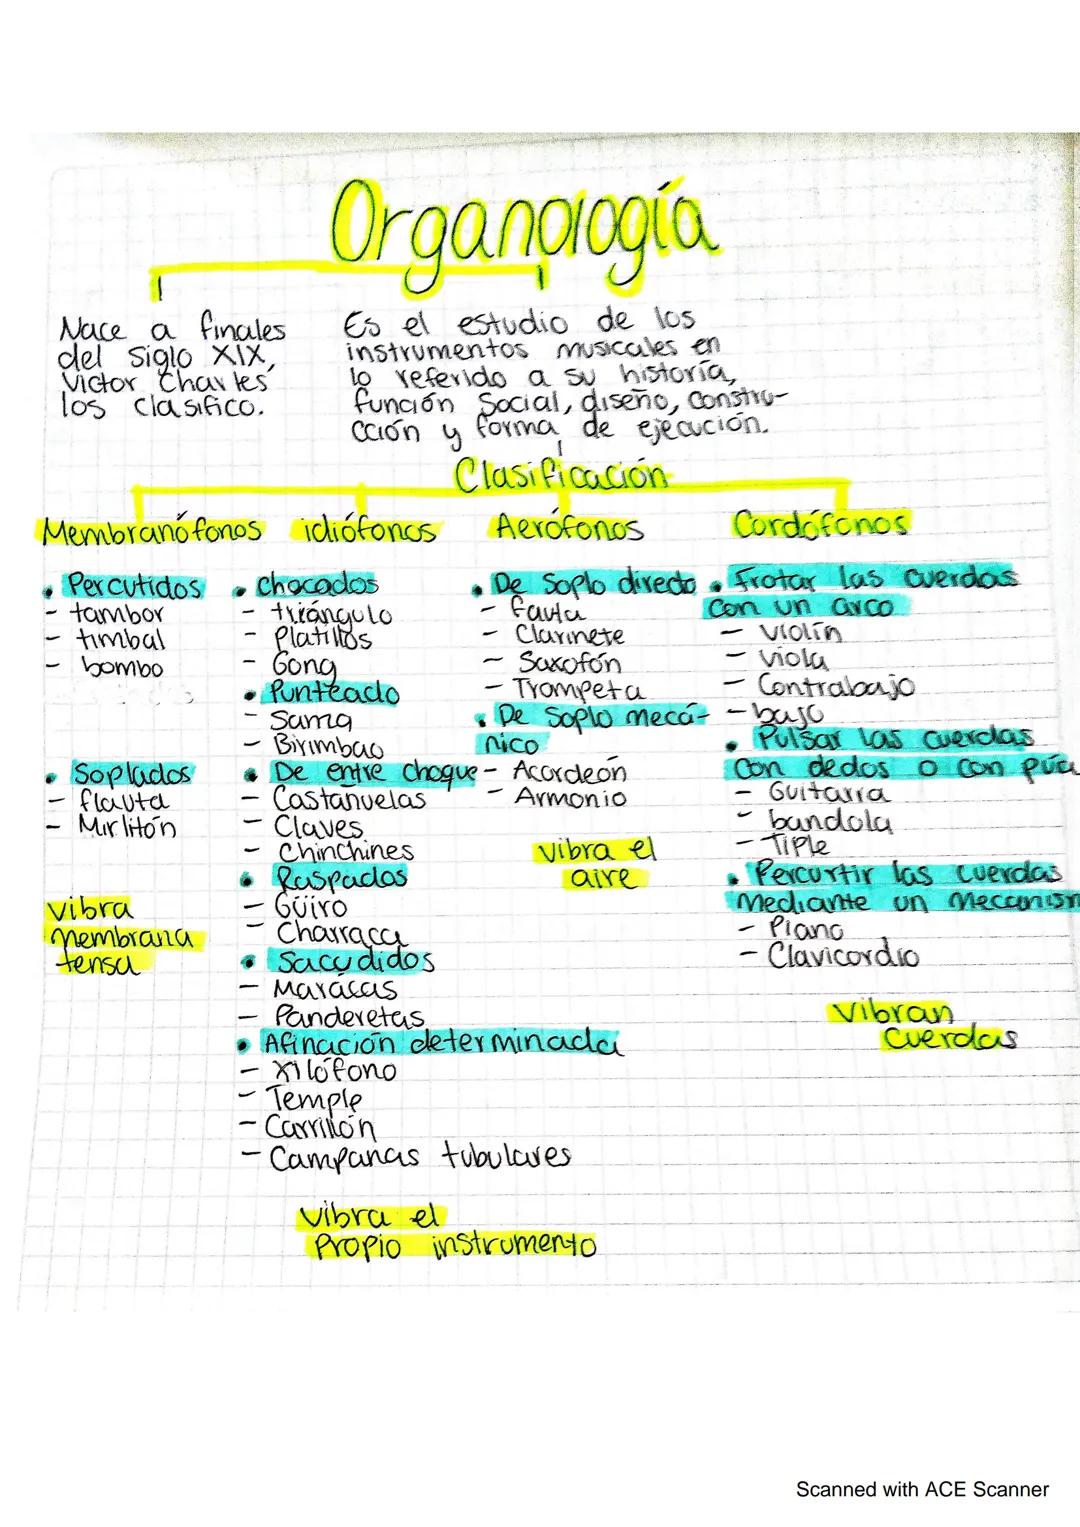 Organología
Nace a finales
del siglo XIX,
Victor Charles
los clasifico.
Es el estudio de los
instrumentos musicales en
lo referido a su historia,
función Social, diseño, constru-
cción y forma de ejecución.
Clasificación
Membranófonos
• Percutidos
- tambor
- timbal
- bombo
• Soplados
- flauta
- Mirlitón
vibra
membrana
tensa
idiófonos
• Chocados
- triángulo
- Platillos
- Gong
• Punteado
- Birimbao
• De entre choque
- Castañuelas
- Claves
- Chinchines
• Raspados
- Güiro
- Charraca
• Sacudidos
- Marácas
- Panderetas
• Afinación determinada
- Xilófono
- Temple
- Carrillón
- Campanas tubulares
vibra el
Propio instrumento
Aerófonos
• De Soplo directo
- fauta
- Clarinete
- Saxofón
- Trompeta
• De Soplo mecá-
nico
- Acordeón
- Armonio
vibra el
aire
Cordófonos
• Frotar las cuerdas
con un arco
- violín
- viola
- Contrabajo
- bajo
• Pulsar las cuerdas
con dedos o con púa
- Guitarra
- bandola
- Tiple
• Percurtir las cuerdas
Mediante un Mecanism
- Piano
- Clavicordio
vibran
cuerdas
Scanned with ACE Scanner